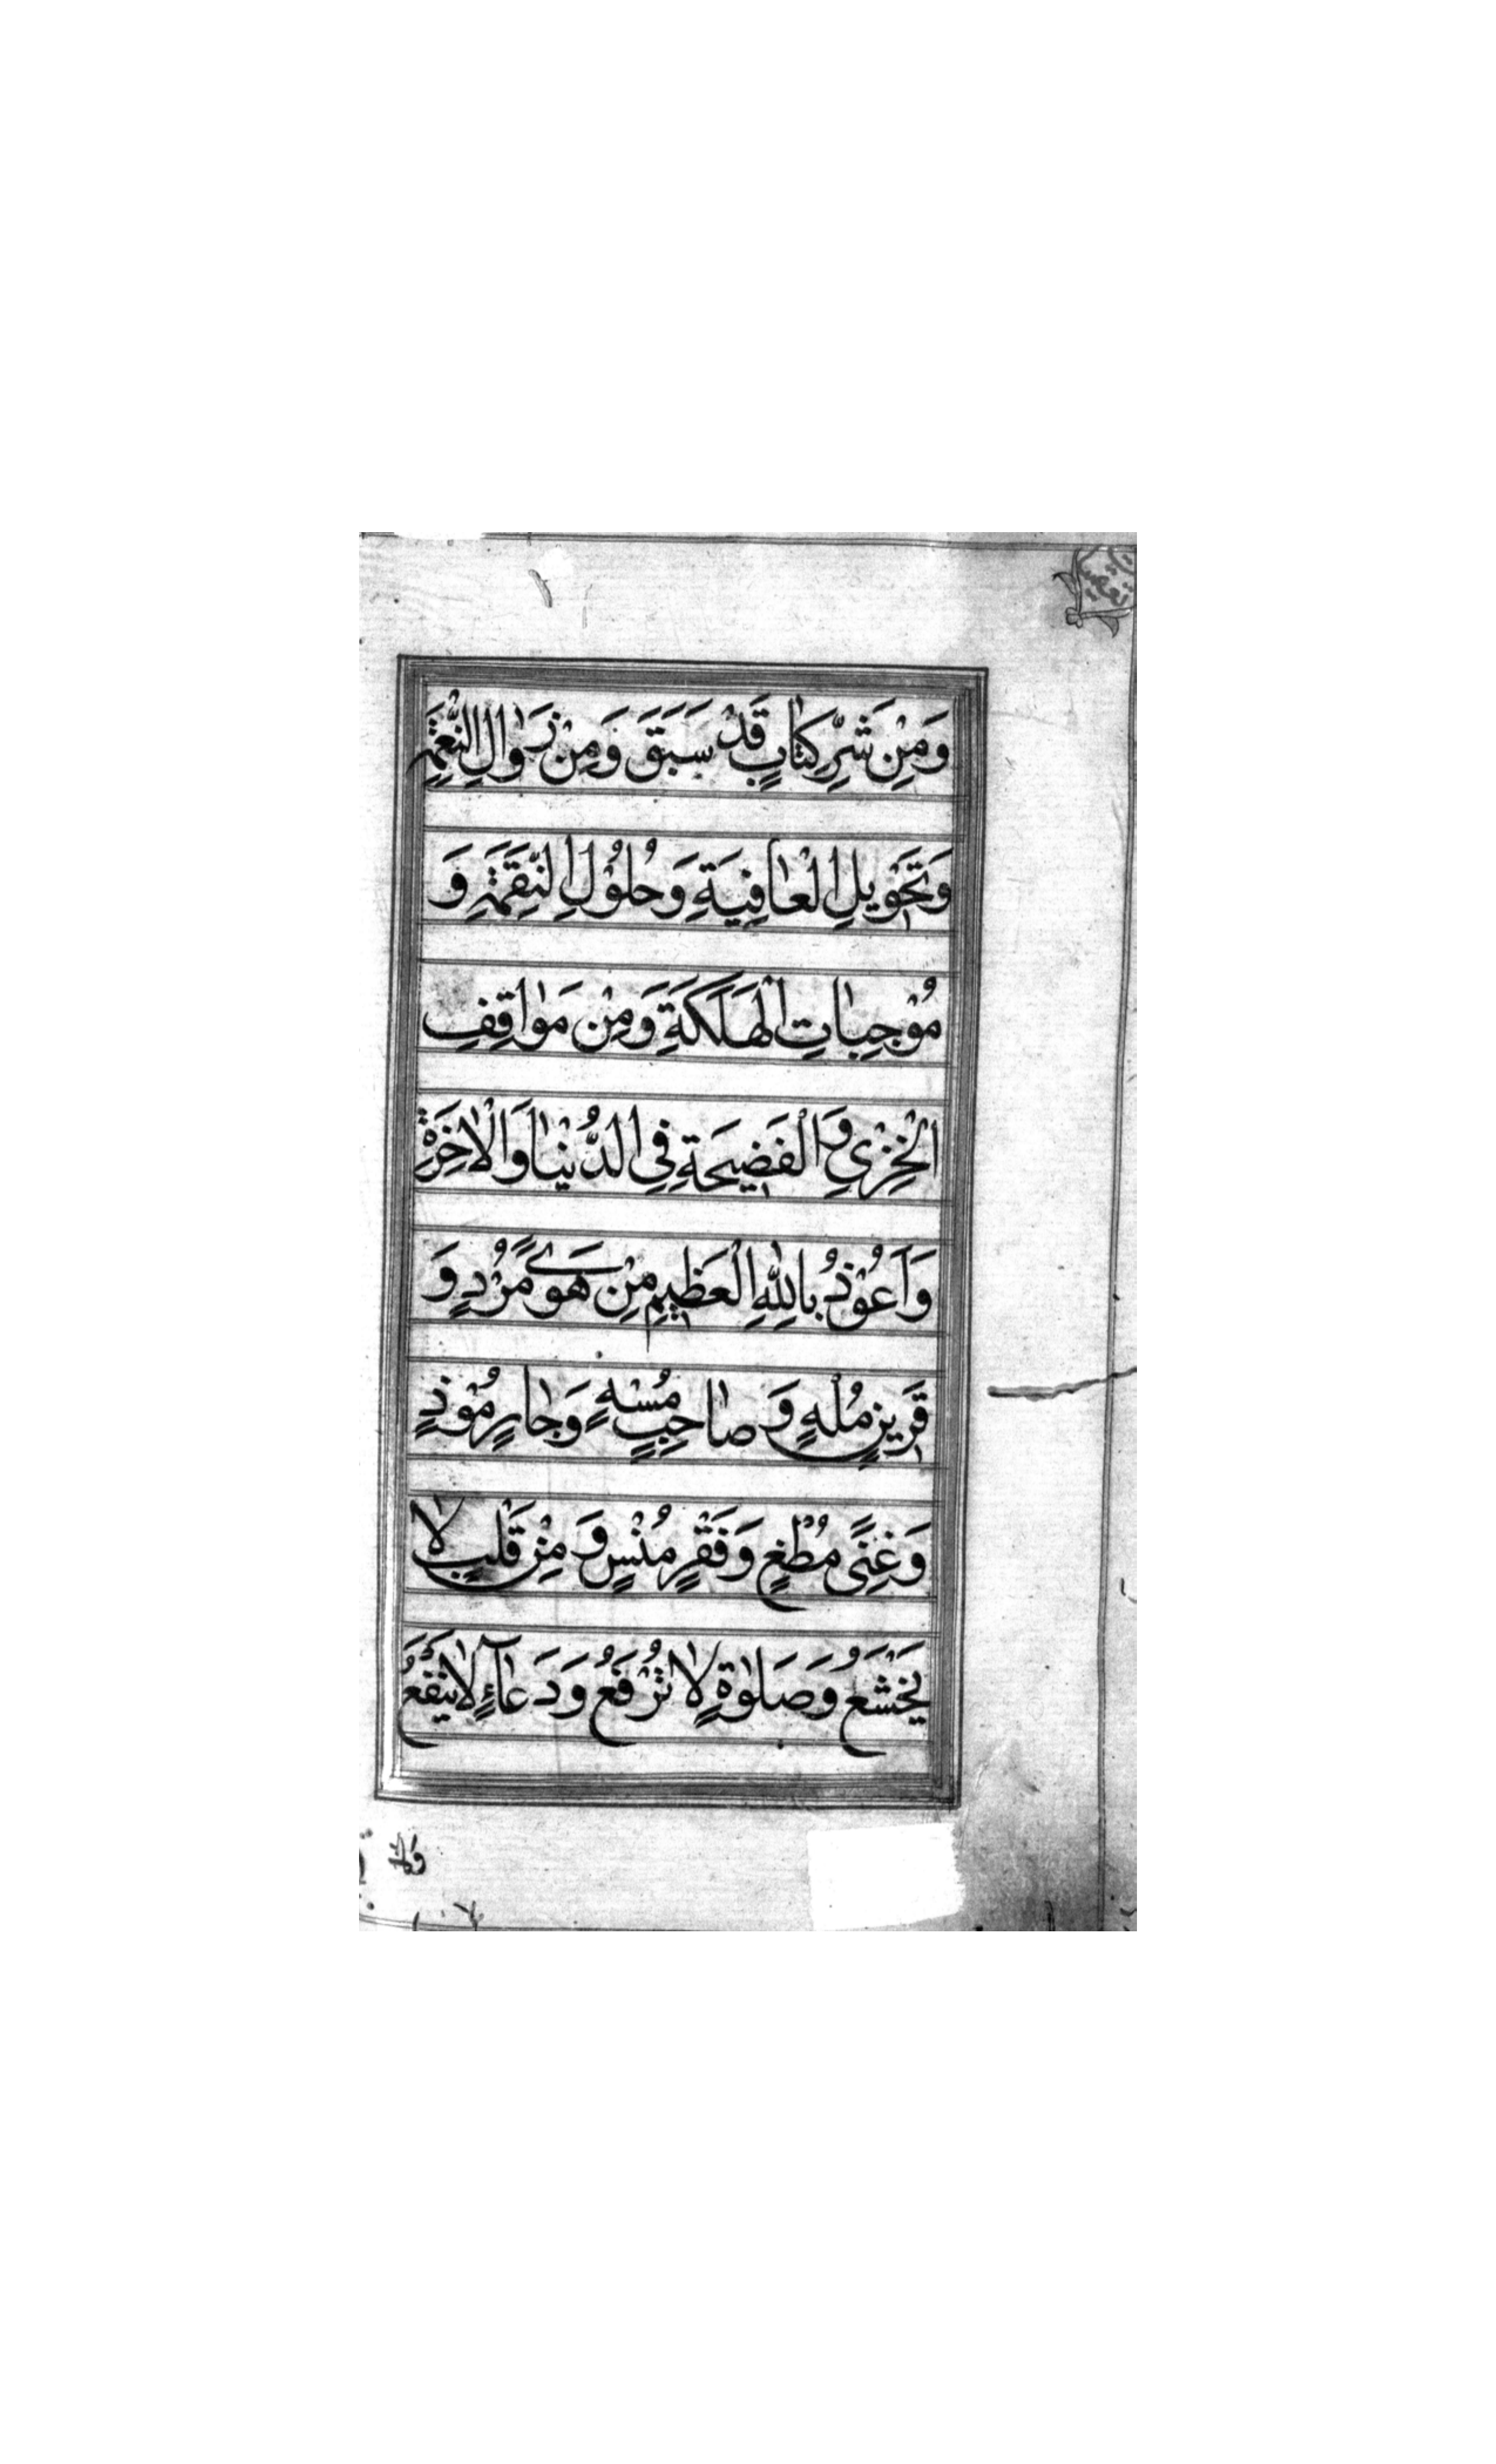 وَمِنْ شَرِّ كِتٰابٍ قَدْ سَبَقَ وَمِنْ زَوٰالِ النِّعْمَةِ
وَتَحْوِيلِ الْعٰافِيَةِ وَحُلُوْلِ النِّقِمَةِ وَ
مُوْجِبٰاتِ الْهَلَكَةِ وَمِنْ مَوٰاقِفِ
الْخِزْيِ وَالْفَضِيحَةِ فِي الدُّنْيٰا وَالْاٰخِرَةِ
وَاَعُوْذُ بِاللّٰهِ الْعَظِيمِ مِنْ هَوًى مُرْدٍ وَ
قَرِينٍ مُلْهٍ وَ صٰاحِبٍ مُسْهٍ وَجٰارٍ مُوْذٍ
وَغِنًى مُطْغٍ وَفَقْرٍ مُنْسٍ وَ مِنْ قَلْبٍ لٰا
يَخْشَعُ وَصَلٰوةٍ لٰا تُرْفَعُ وَدَعٰاۤءٍ لٰا يَنْفَعُ